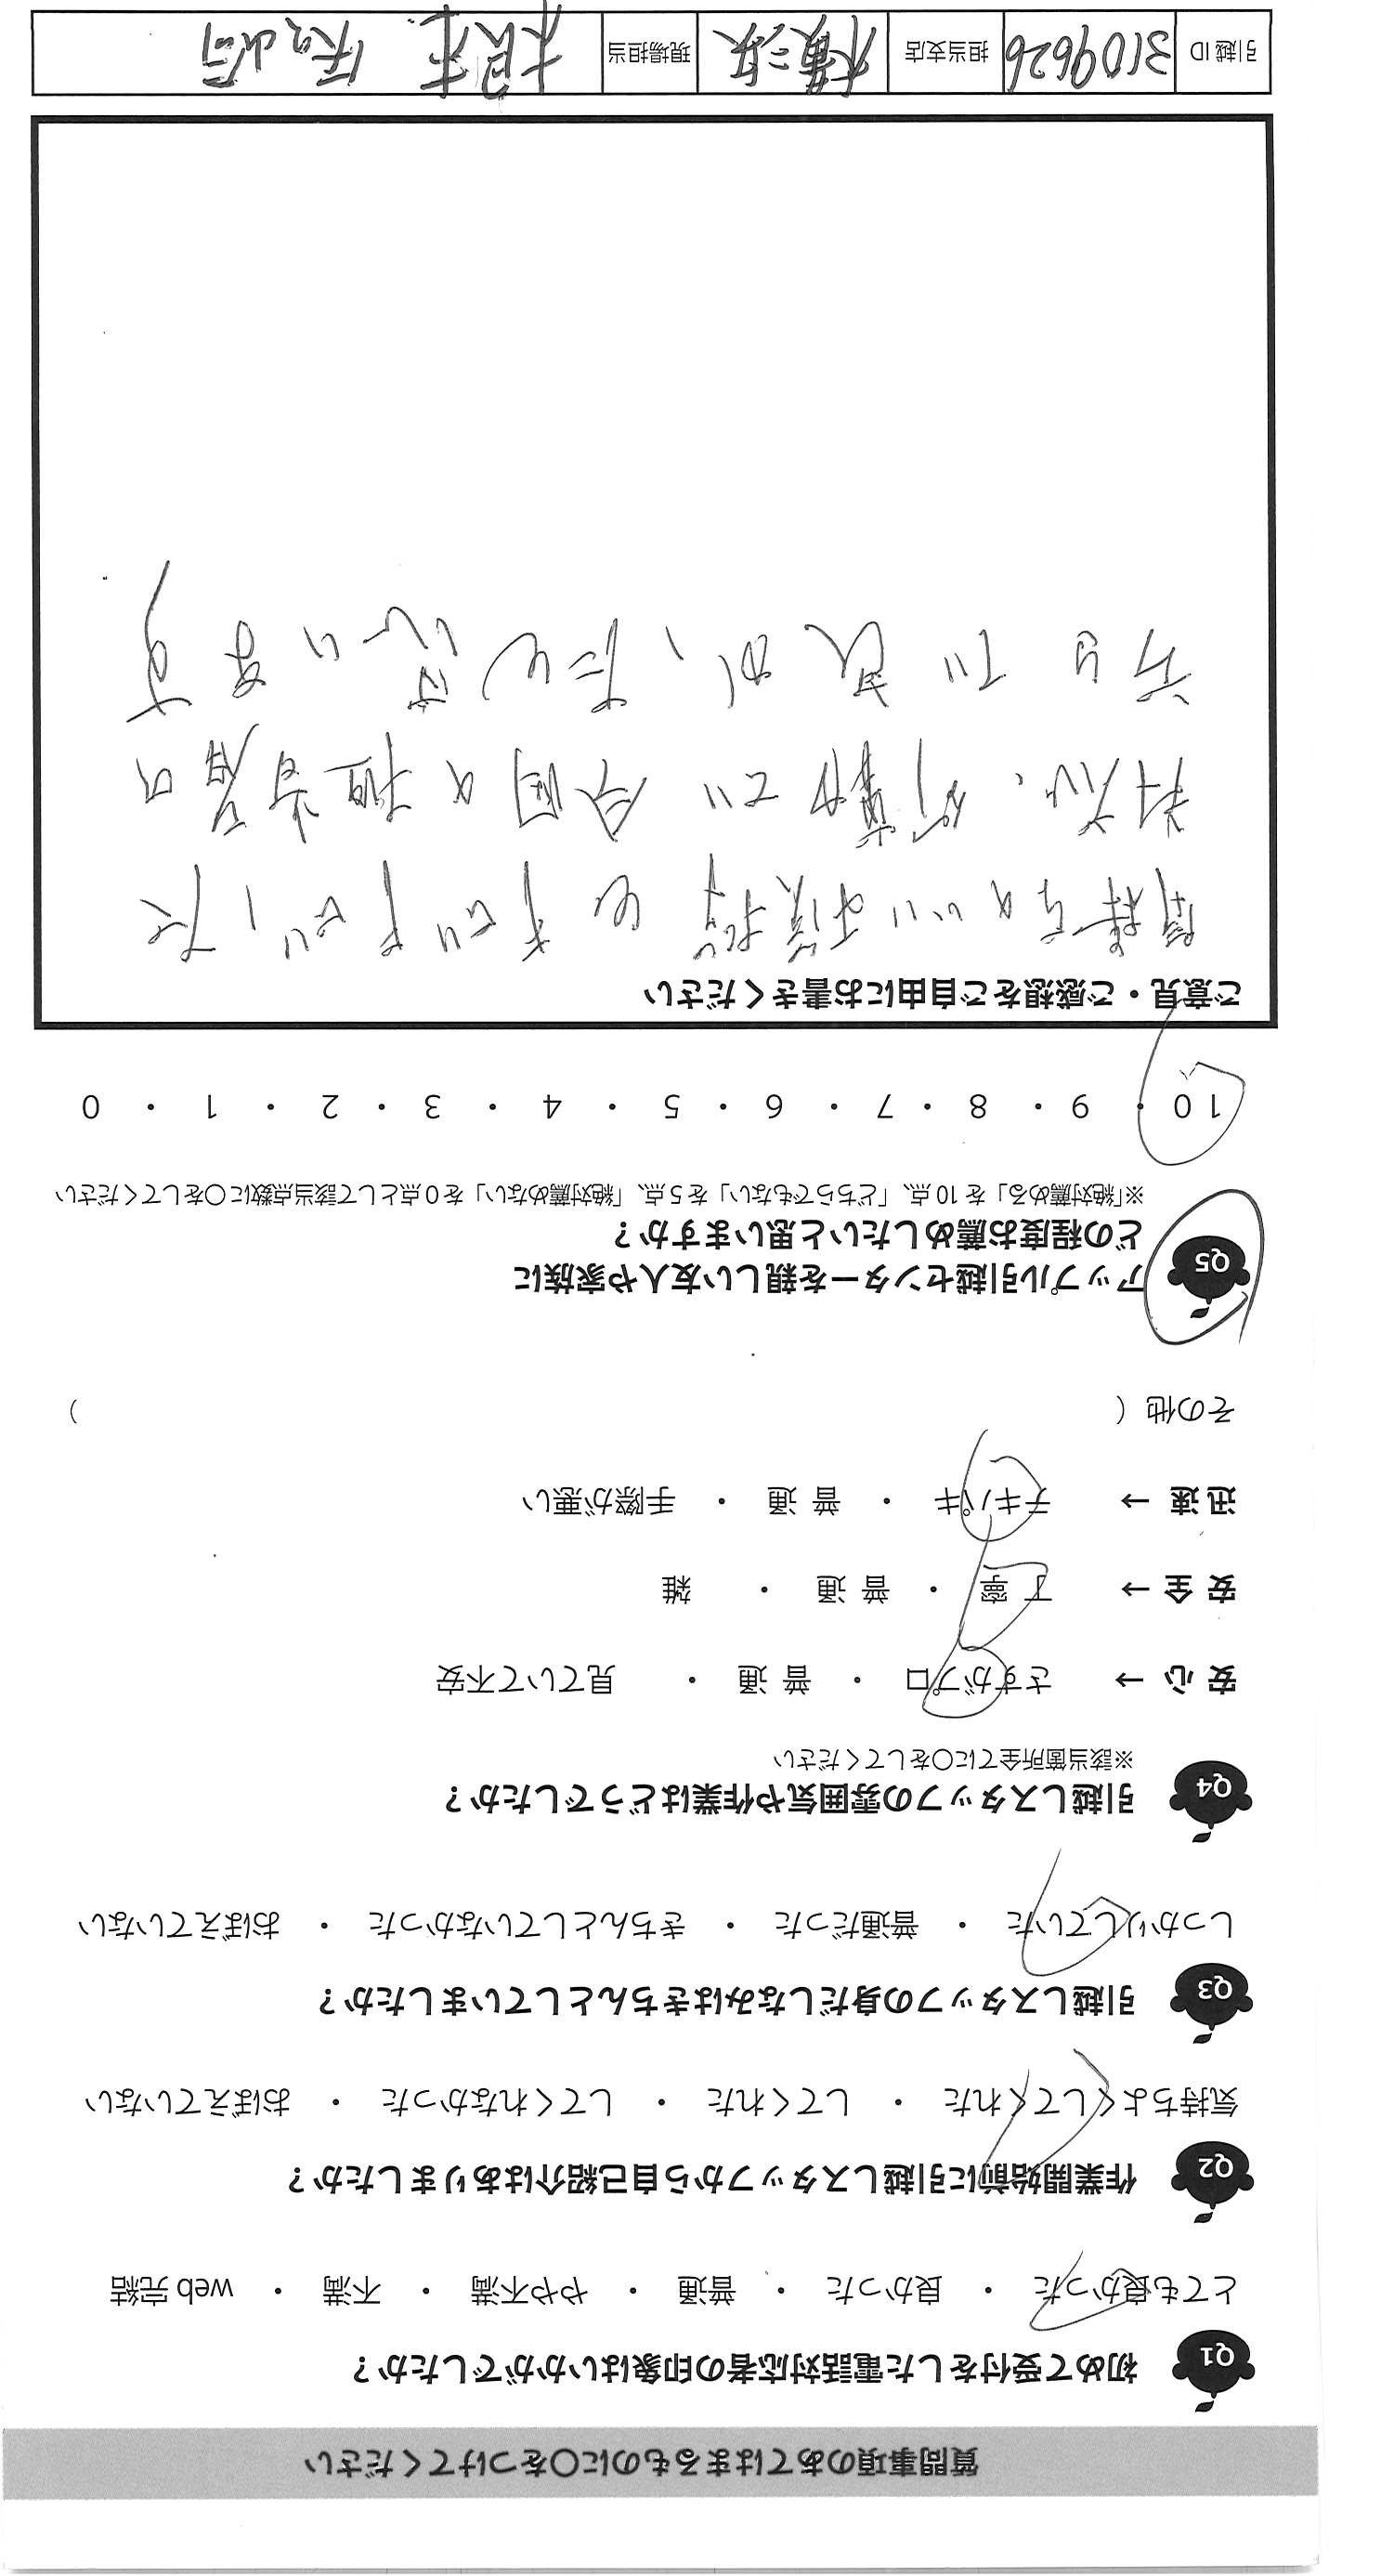 質問事項のあてはまるものに○をつけてください
Q1 初めて受付をした電話対応者の印象はいかがでしたか？
とても良かった ・ 良かった ・ 普通 ・ やや不満 ・ 不満 ・ web 完結
Q2 作業開始前に引越しスタッフから自己紹介はありましたか？
気持ちよくしてくれた ・ してくれた ・ してくれなかった ・ おぼえていない
Q3 引越しスタッフの身だしなみはきちんとしていましたか？
しっかりしていた ・ 普通だった ・ きちんとしていなかった ・ おぼえていない
Q4 引越しスタッフの雰囲気や作業はどうでしたか？
※該当箇所全てに○をしてください
安 心 → さすがプロ ・ 普 通 ・ 見ていて不安
安 全 → 丁 寧 ・ 普 通 ・ 雑
迅 速 → テキパキ ・ 普 通 ・ 手際が悪い
その他 （ ）
Q5 アップル引越センターを親しい友人や家族に
どの程度お薦めしたいと思いますか？
※「絶対薦める」を 10 点、「どちらでもない」を 5 点、「絶対薦めない」を 0 点として該当点数に○をしてください
10 ・ 9 ・ 8 ・ 7 ・ 6 ・ 5 ・ 4 ・ 3 ・ 2 ・ 1 ・ 0
ご意見・ご感想をご自由にお書きください
気持ちのいい挨拶とてきぱきとした
対応、行動でい 今回の担当者は
引越 ID 3109626 担当支店 横浜 現場担当